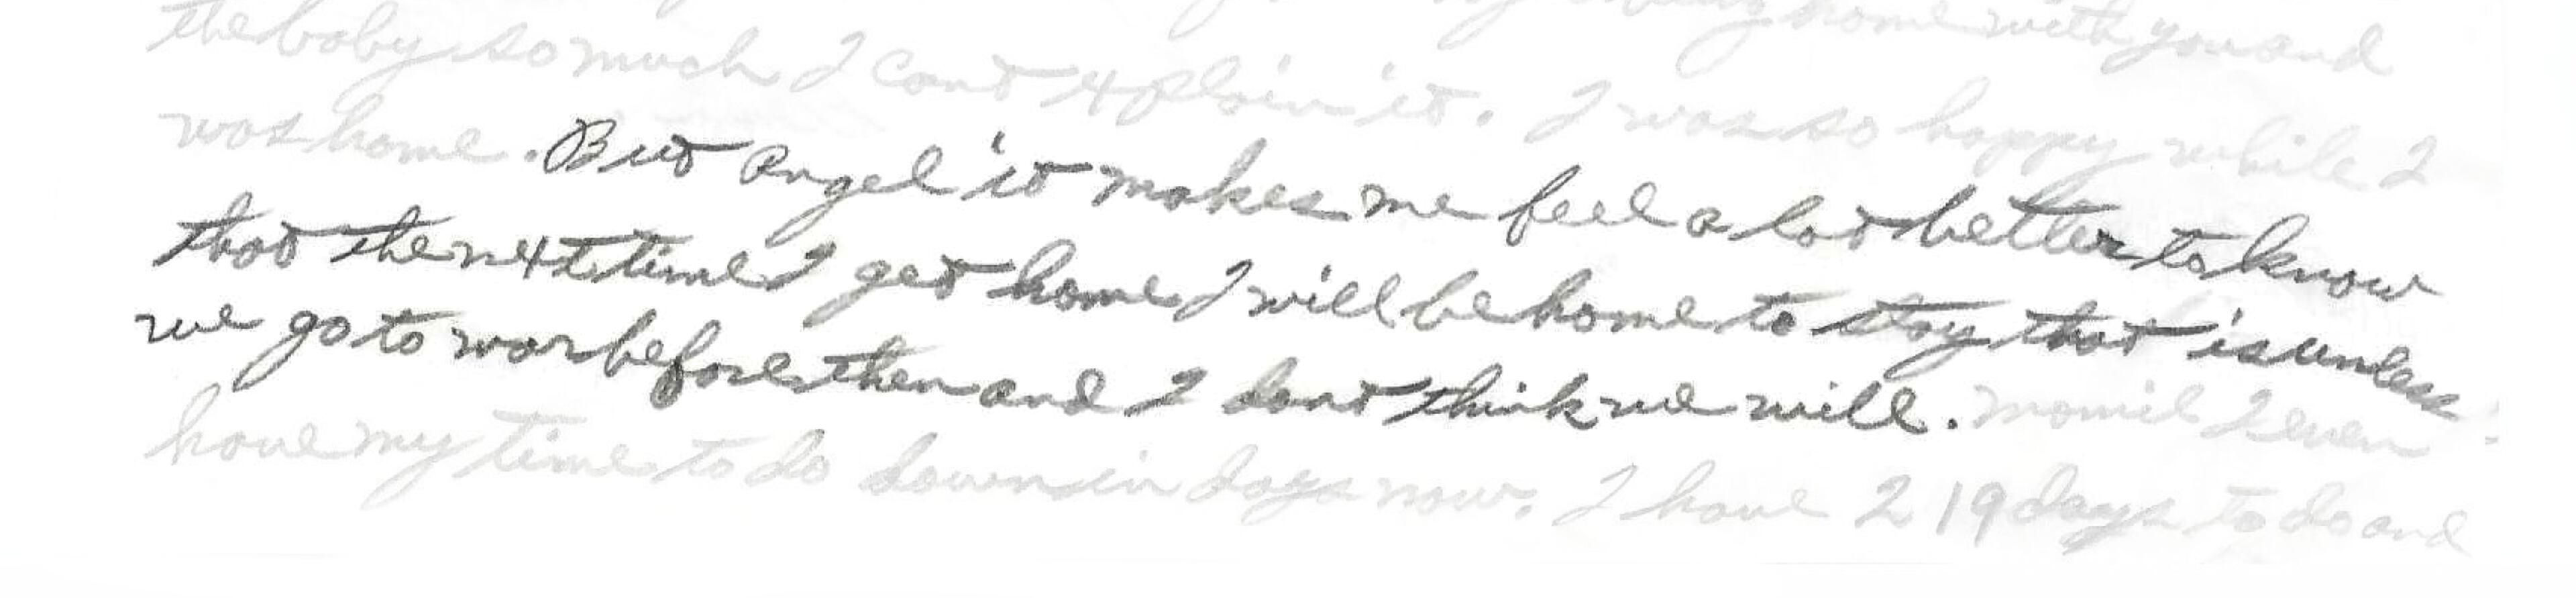 home with you and
the baby so much I cant explain it. I was so happy while I
was home. But angel it makes me feel a lot better to know
that the next time I get home I will be home to stay that is unless
we go to war before then and I dont think we will. I even
have my time to do down in days now. I have 219 days to do and